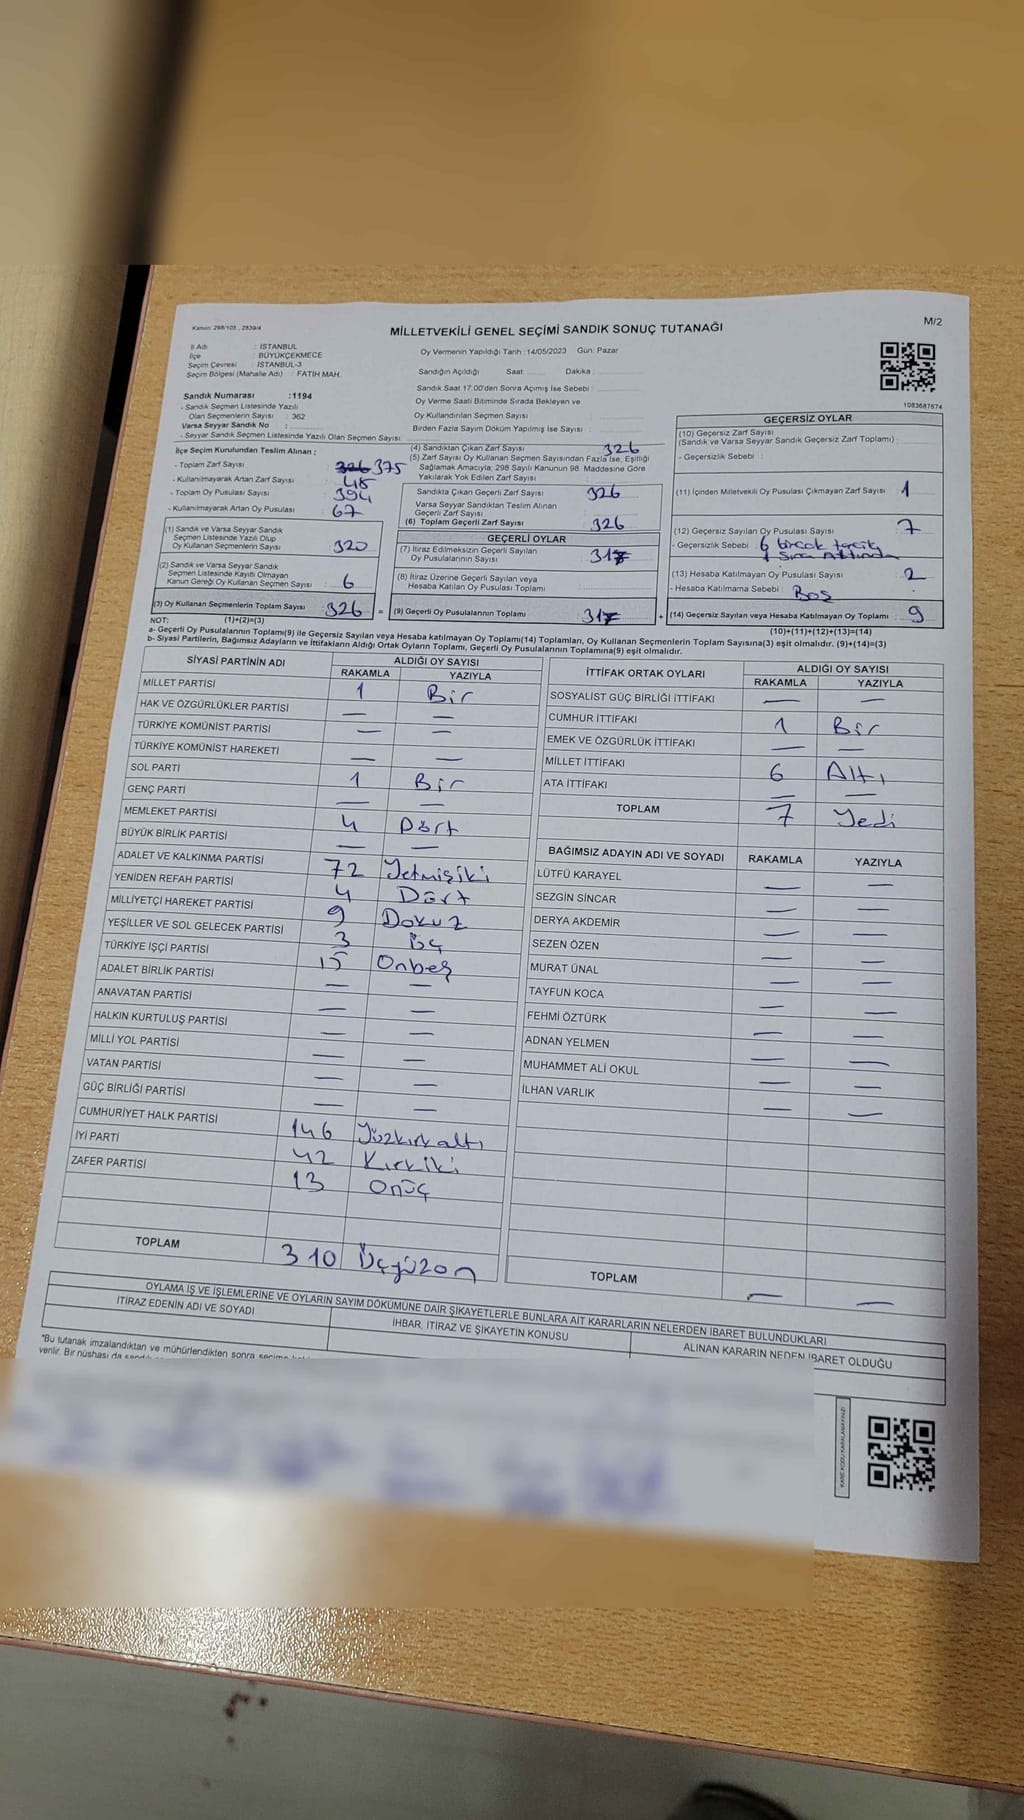 Kanun: 298/105 , 2839/4
MİLLETVEKİLİ GENEL SEÇİMİ SANDIK SONUÇ TUTANAĞI
M/2
İl Adı : İSTANBUL
İlçe : BÜYÜKÇEKMECE
Seçim Çevresi : İSTANBUL-3
Seçim Bölgesi (Mahalle Adı) : FATİH MAH.
Oy Vermenin Yapıldığı Tarih : 14/05/2023 Gün: Pazar
Sandığın Açıldığı Saat: Dakika :
Sandık Saat 17.00'den Sonra Açılmış İse Sebebi :
Oy Verme Saati Bitiminde Sırada Bekleyen ve
Oy Kullandırılan Seçmen Sayısı :
Birden Fazla Sayım Döküm Yapılmış İse Sayısı :
1083687674
Sandık Numarası :1194
- Sandık Seçmen Listesinde Yazılı
Olan Seçmenlerin Sayısı : 362
Varsa Seyyar Sandık No :
- Seyyar Sandık Seçmen Listesinde Yazılı Olan Seçmen Sayısı:
İlçe Seçim Kurulundan Teslim Alınan ;
- Toplam Zarf Sayısı : 326 375
- Kullanılmayarak Artan Zarf Sayısı : 48
- Toplam Oy Pusulası Sayısı : 394
- Kullanılmayarak Artan Oy Pusulası : 67
(1) Sandık ve Varsa Seyyar Sandık
Seçmen Listesinde Yazılı Olup
Oy Kullanan Seçmenlerin Sayısı : 320
(2) Sandık ve Varsa Seyyar Sandık
Seçmen Listesinde Kayıtlı Olmayan
Kanun Gereği Oy Kullanan Seçmen Sayısı : 6
(3) Oy Kullanan Seçmenlerin Toplam Sayısı : 326 =
(4) Sandıktan Çıkan Zarf Sayısı : 326
(5) Zarf Sayısı Oy Kullanan Seçmen Sayısından Fazla İse, Eşitliği
Sağlamak Amacıyla, 298 Sayılı Kanunun 98. Maddesine Göre
Yakılarak Yok Edilen Zarf Sayısı :
Sandıkta Çıkan Geçerli Zarf Sayısı : 326
Varsa Seyyar Sandıktan Teslim Alınan
Geçerli Zarf Sayısı :
(6) Toplam Geçerli Zarf Sayısı : 326
GEÇERLİ OYLAR
(7) İtiraz Edilmeksizin Geçerli Sayılan
Oy Pusulalarının Sayısı : 317
(8) İtiraz Üzerine Geçerli Sayılan veya
Hesaba Katılan Oy Pusulaları Toplamı :
(9) Geçerli Oy Pusulalarının Toplamı : 317 +
GEÇERSİZ OYLAR
(10) Geçersiz Zarf Sayısı
(Sandık ve Varsa Seyyar Sandık Geçersiz Zarf Toplamı) :
- Geçersizlik Sebebi :
(11) İçinden Milletvekili Oy Pusulası Çıkmayan Zarf Sayısı : 1
(12) Geçersiz Sayılan Oy Pusulası Sayısı : 7
- Geçersizlik Sebebi : 6 birçok tercih
(13) Hesaba Katılmayan Oy Pusulası Sayısı : 2
- Hesaba Katılmama Sebebi : Boş
(14) Geçersiz Sayılan veya Hesaba Katılmayan Oy Toplamı : 9
NOT: (1)+(2)=(3)
(10)+(11)+(12)+(13)=(14)
a- Geçerli Oy Pusulalarının Toplamı(9) ile Geçersiz Sayılan veya Hesaba katılmayan Oy Toplamı(14) Toplamları, Oy Kullanan Seçmenlerin Toplam Sayısına(3) eşit olmalıdır. (9)+(14)=(3)
b- Siyasi Partilerin, Bağımsız Adayların ve İttifakların Aldığı Ortak Oyların Toplamı, Geçerli Oy Pusulalarının Toplamına(9) eşit olmalıdır.
SİYASİ PARTİNİN ADI ALDIĞI OY SAYISI
RAKAMLA YAZIYLA
MİLLET PARTİSİ 1 Bir
HAK VE ÖZGÜRLÜKLER PARTİSİ — —
TÜRKİYE KOMÜNİST PARTİSİ — —
TÜRKİYE KOMÜNİST HAREKETİ — —
SOL PARTİ 1 Bir
GENÇ PARTİ — —
MEMLEKET PARTİSİ 4 Dört
BÜYÜK BİRLİK PARTİSİ — —
ADALET VE KALKINMA PARTİSİ 72 Yetmişiki
YENİDEN REFAH PARTİSİ 4 Dört
MİLLİYETÇİ HAREKET PARTİSİ 9 Dokuz
YEŞİLLER VE SOL GELECEK PARTİSİ 3 Üç
TÜRKİYE İŞÇİ PARTİSİ 15 Onbeş
ADALET BİRLİK PARTİSİ — —
ANAVATAN PARTİSİ — —
HALKIN KURTULUŞ PARTİSİ — —
MİLLİ YOL PARTİSİ — —
VATAN PARTİSİ — —
GÜÇ BİRLİĞİ PARTİSİ — —
CUMHURİYET HALK PARTİSİ 146 Yüzkırkaltı
İYİ PARTİ 42 Kırkiki
ZAFER PARTİSİ 13 Onüç
TOPLAM 310 Üçyüzon
İTTİFAK ORTAK OYLARI ALDIĞI OY SAYISI
RAKAMLA YAZIYLA
SOSYALİST GÜÇ BİRLİĞİ İTTİFAKI — —
CUMHUR İTTİFAKI 1 Bir
EMEK VE ÖZGÜRLÜK İTTİFAKI — —
MİLLET İTTİFAKI 6 Altı
ATA İTTİFAKI — —
TOPLAM 7 Yedi
BAĞIMSIZ ADAYIN ADI VE SOYADI RAKAMLA YAZIYLA
LÜTFÜ KARAYEL — —
SEZGİN SİNCAR — —
DERYA AKDEMİR — —
SEZEN ÖZEN — —
MURAT ÜNAL — —
TAYFUN KOCA — —
FEHMİ ÖZTÜRK — —
ADNAN YELMEN — —
MUHAMMET ALİ OKUL — —
İLHAN VARLIK — —
TOPLAM — —
OYLAMA İŞ VE İŞLEMLERİNE VE OYLARIN SAYIM DÖKÜMÜNE DAİR ŞİKAYETLERLE BUNLARA AİT KARARLARIN NELERDEN İBARET BULUNDUKLARI
İTİRAZ EDENİN ADI VE SOYADI İHBAR, İTİRAZ VE ŞİKAYETİN KONUSU ALINAN KARARIN NEDEN İBARET OLDUĞU
"Bu tutanak imzalandıktan ve mühürlendikten sonra seçim
verilir. Bir nüshası da